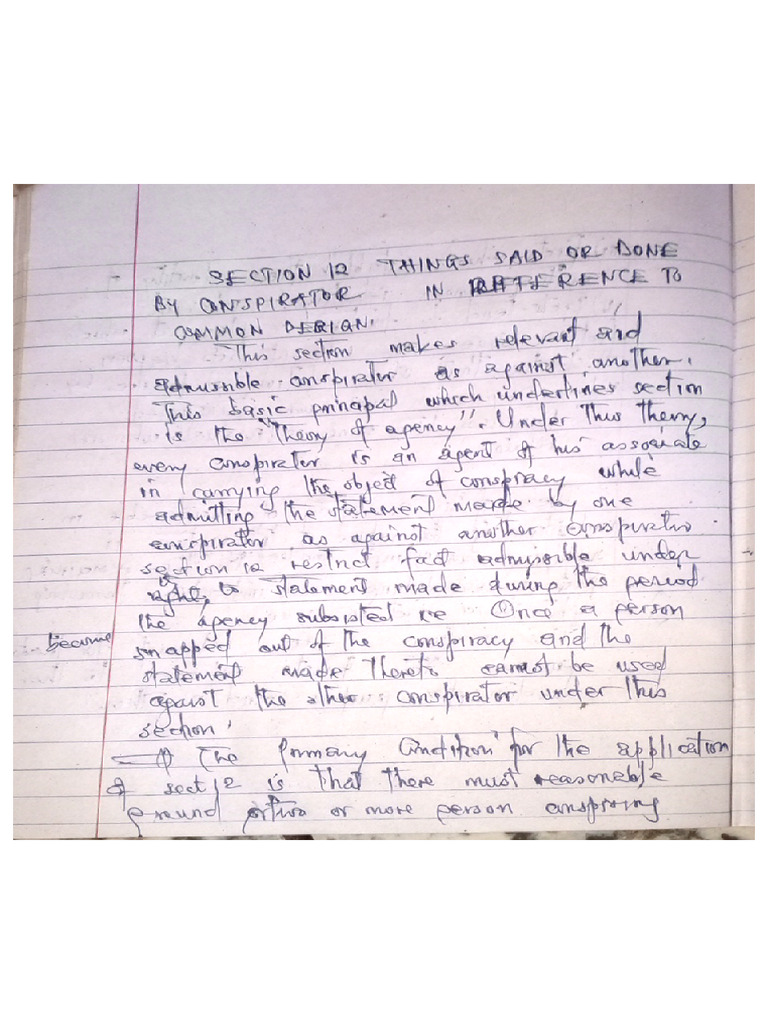 SECTION 12 THINGS SAID OR DONE
BY CONSPIRATOR IN REFERENCE TO
COMMON DERIGN.
This section makes relevant and
admissible conspirator as against another.
This basic principal which underlines section
is the "Theory of agency". Under this theory,
every conspirator is an agent of his associate
in carrying the object of conspiracy while
admitting the statement made by one
conspirator as against another conspirator
section 12 restrict fact admissible under
right, to statement made during the period
the agency subsisted i.e Once a person
become
snapped out of the conspiracy and the
statement made thereto cannot be used
against the other conspirator under this
section.
The primary Condition for the application
of sect 12 is that there must reasonable
ground or two or more person conspiring